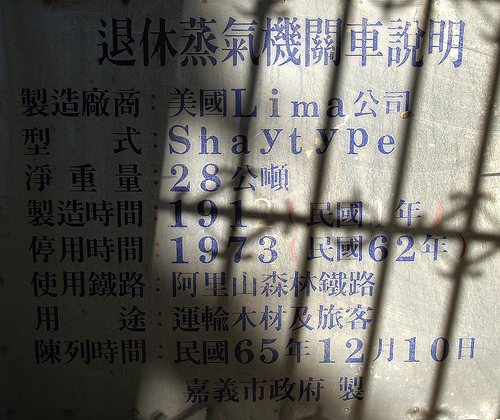 退休蒸氣機關車說明
製造廠商：美國Lima公司
型式：Shaytype
淨重量：28公噸
製造時間：191 (民國 年)
停用時間：1973(民國62年)
使用鐵路：阿里山森林鐵路
用途：運輸木材及旅客
陳列時間：民國65年12月10日
嘉義市政府 製